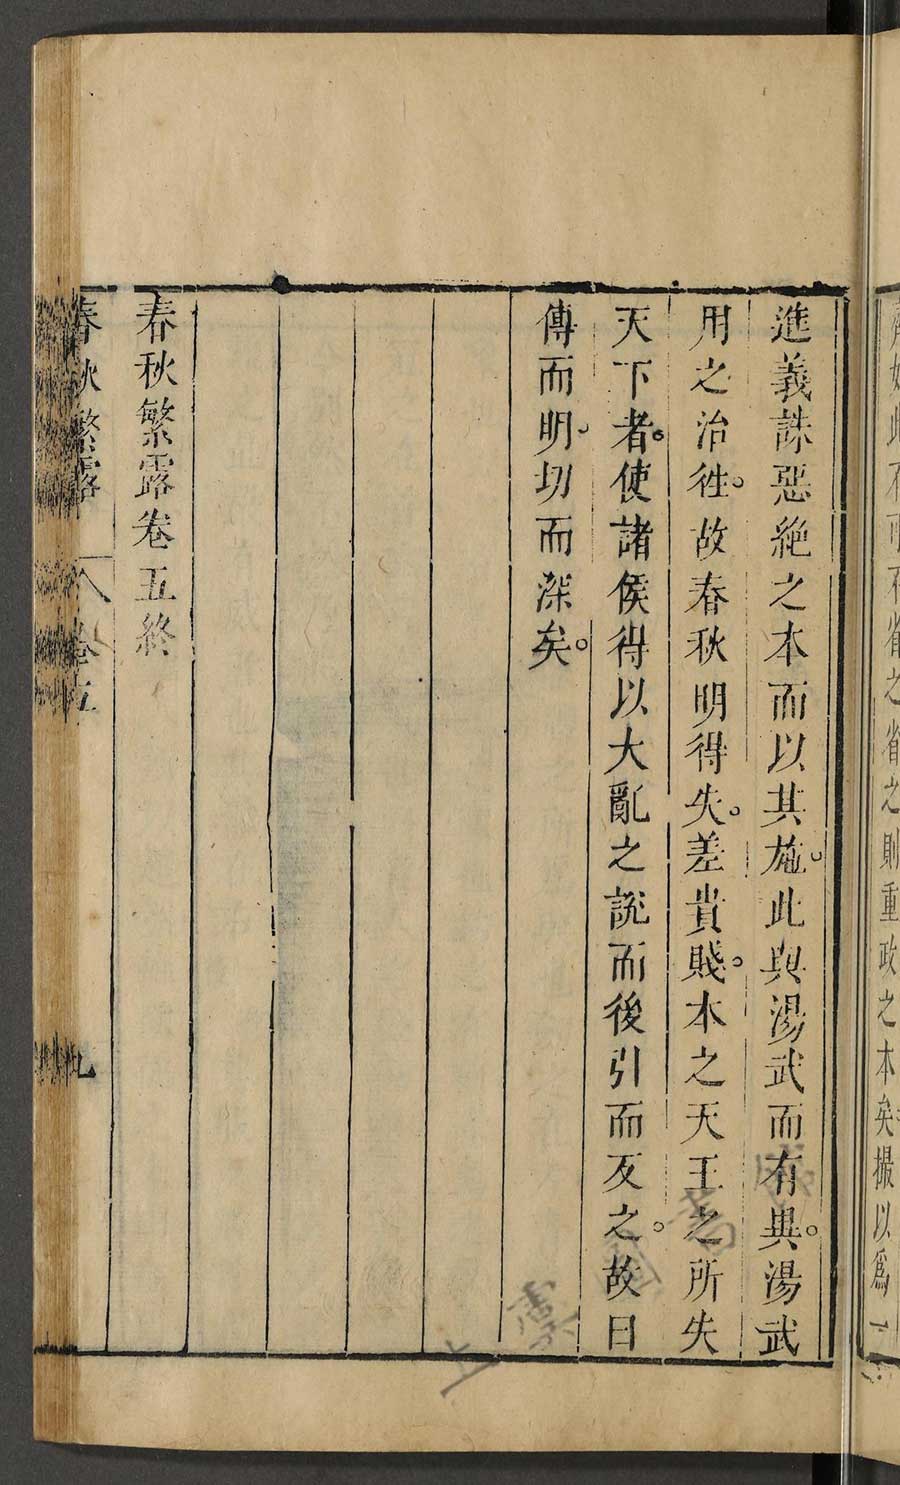 齊如此不可不省之省之則重政之本矣撮以爲一
進義誅惡絶之本而以其施此與湯武而有異湯武
用之治徃故春秋明得失差貴賤本之天王之所失
天下者使諸侯得以大亂之說而後引而反之故曰
傳而明切而深矣
春秋繁露卷五終
春秋繁露 卷五 九
上虞圖書館